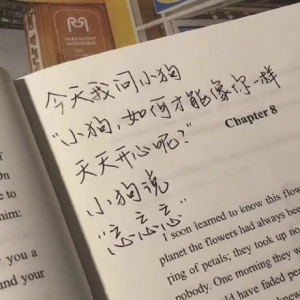 今天我问小狗
“小狗,如何才能像你一样
天天开心呢?”
小狗说
“忘忘忘”
Chapter 8
I soon learned to know this flow
planet the flowers had always been
ring of petals; they took up no
nobody. One morning they wo
ould have faded pe
On
to
him:
you a
nd your